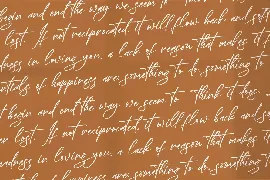 begin and end the way we seem to
lost. If not reciprocated, it will flow back and so
adness in loving you, a lack of reason that makes it f
entials of happiness are: something to do, something t
t begin and end the way we seem to think it does.
er lost. If not reciprocated, it will flow back and so
adness in loving you, a lack of reason that makes
of happiness are: something to do, something